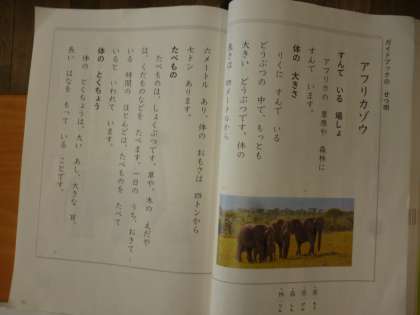 ガイドブックの せつ明
アフリカゾウ
すんで いる 場しょ
アフリカの 草原や 森林に
すんで います。
体の 大きさ
りくに すんで いる
どうぶつの 中で、もっとも
大きい どうぶつです。体の
長さは 四メートルから
六メートル あり、体の おもさは 四トンから
七トン あります。
たべもの
たべものは、しょくぶつです。草や、木の えだや
は、くだものなどを たべます。一日の うち、おきて
いる 時間の ほとんどは、たべものを たべて
いると いわれて います。
体の とくちょう
体の とくちょうは、太い あし、大きな 耳、
長い はなを もって いる ことです。